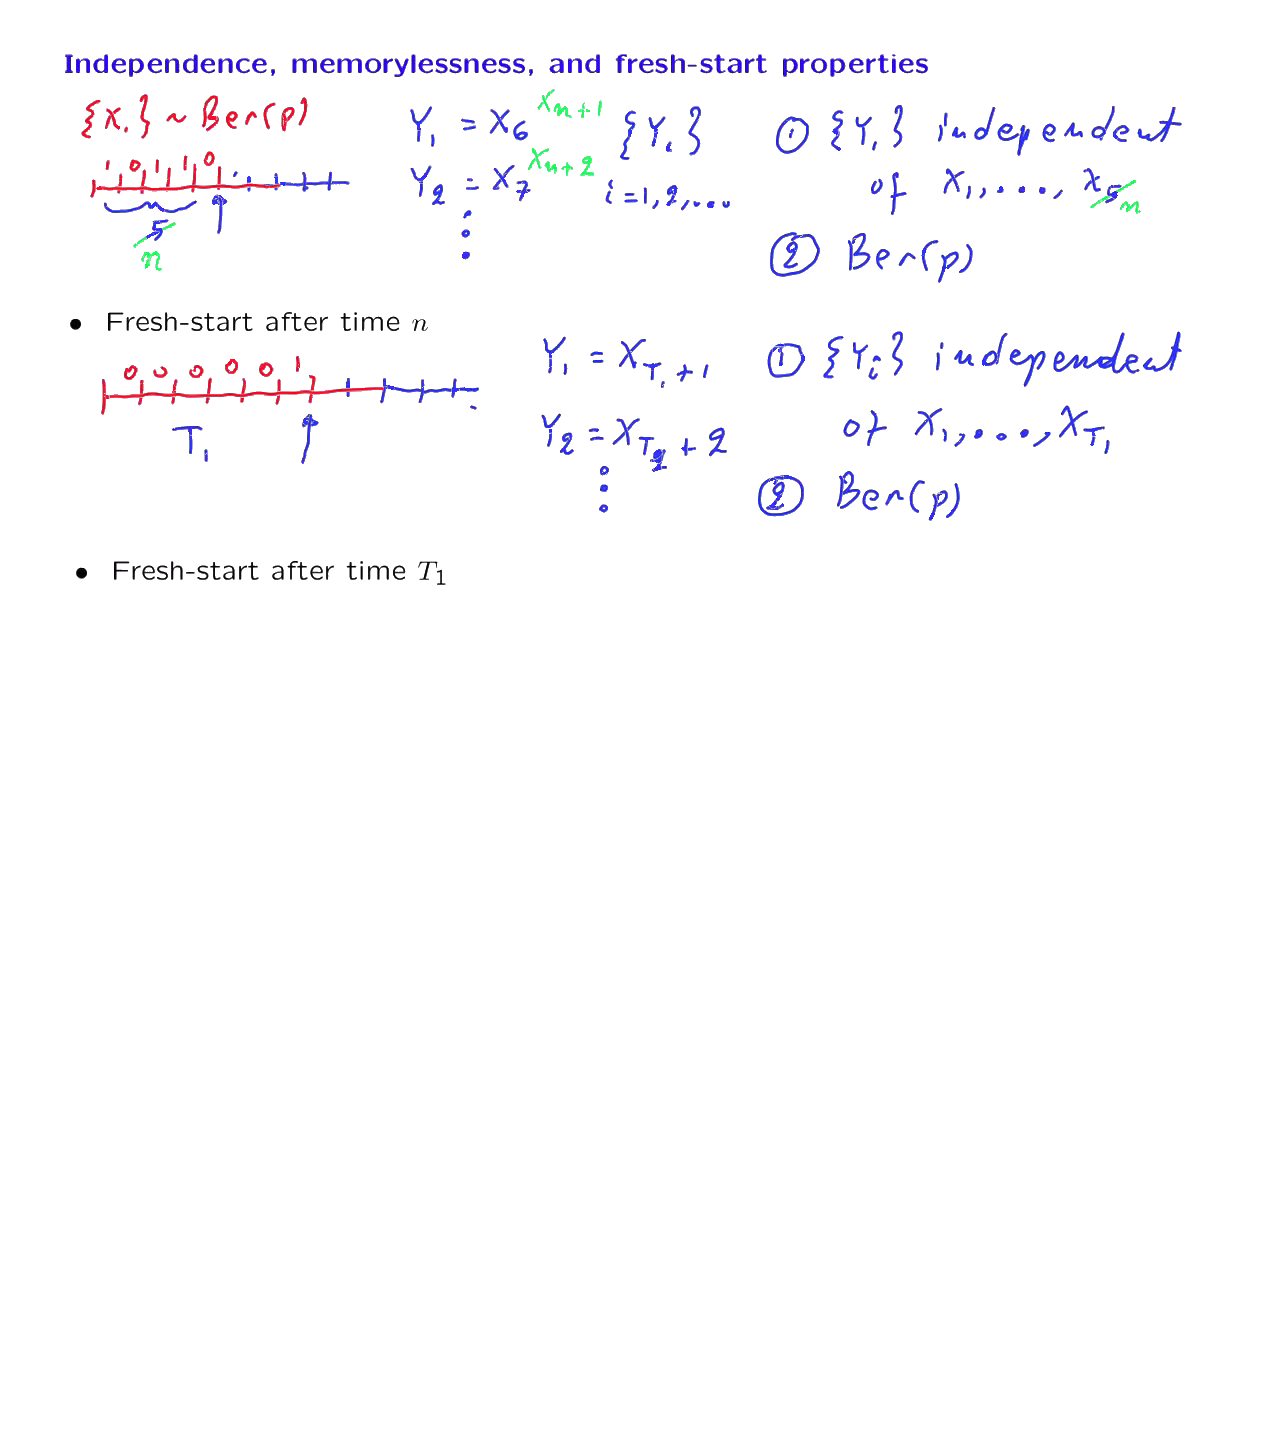 Independence, memorylessness, and fresh-start properties
{Xᵢ} ~ Ber(p)
1 0 1 1 0
5
n
Y₁ = X₆ Xₙ₊₁
Y₂ = X₇ Xₙ₊₂
⋮
{Yᵢ}
i = 1, 2, ...
① {Yᵢ} independent
of X₁, ..., X₅ n
② Ber(p)
• Fresh-start after time n
0 0 0 0 0 1
T₁
Y₁ = X_{T₁+1}
Y₂ = X_{T₁+2}
⋮
① {Yᵢ} independent
of X₁, ..., X_{T₁}
② Ber(p)
• Fresh-start after time T₁